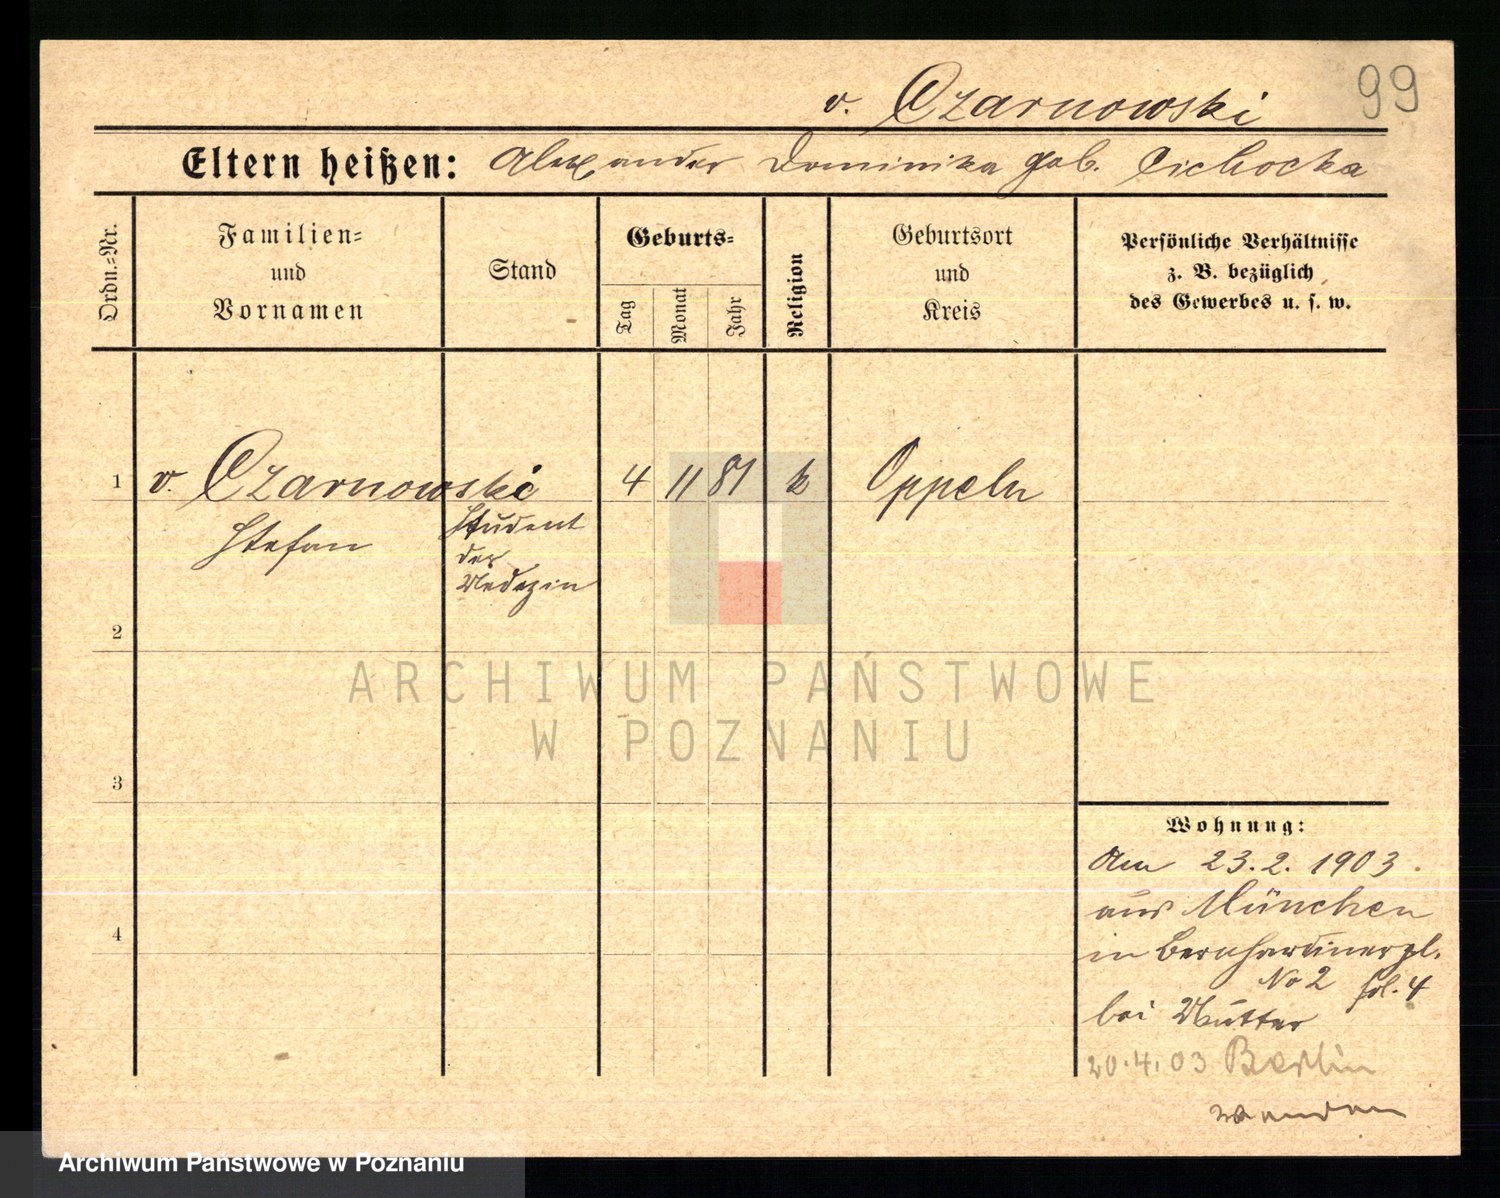 v. Czarnowski 99
Eltern heißen: Alexander Dominika geb. Cichocka
Ordn.=Nr.
Familien=
und
Vornamen
Stand
Geburts=
Tag
Monat
Jahr
Religion
Geburtsort
und
Kreis
Persönliche Verhältnisse
z. B. bezüglich
des Gewerbes u. s. w.
1 v. Czarnowski 4 11 81 k Oppeln
Stefan
Student
der
Medezin
2
ARCHIWUM PAŃSTWOWE
W POZNANIU
3
Wohnung:
Am 23.2.1903.
aus München
4
in Bernhardinerpl.
No 2 fol. 4
bei Mutter
20.4.03 Berlin
wenden
Archiwum Państwowe w Poznaniu